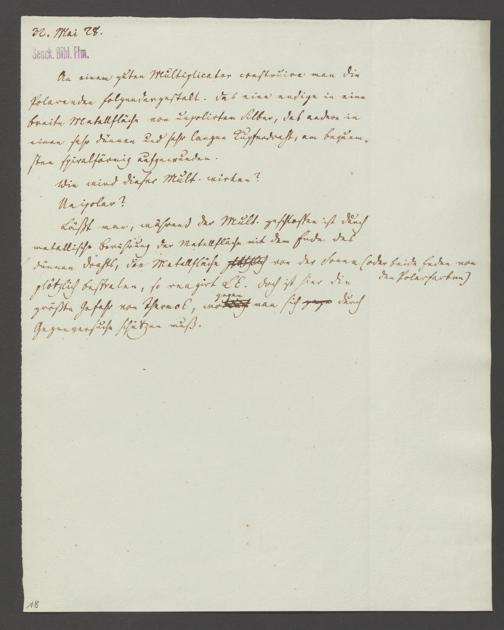 32. Mai 28.
Senck. Bibl. Ffm.
An einem guten Multiplicator construire man die
Polarenden folgendergestalt. Das eine endige in eine
breite Metallfläche von unpolirtem Silber, das andere in
einen sehr dünnen und sehr langen Kupferdraht, am bequem-
sten spiralförmig aufgewunden.
Wie wird dieser Mult. wirken?
Unipolar?
Läßt man, während der Mult. geschlossen ist durch
metallische Berührung der Metallfläche mit dem Ende des
dünnen Drahts, die Metallfläche von der Sonne (oder beide Enden von
den Polarfarben)
plötzlich bestralen, so doch ist hier die
größte Gefahr von Thermos, gegen man sich durch
Gegenversuche schützen muß.
18